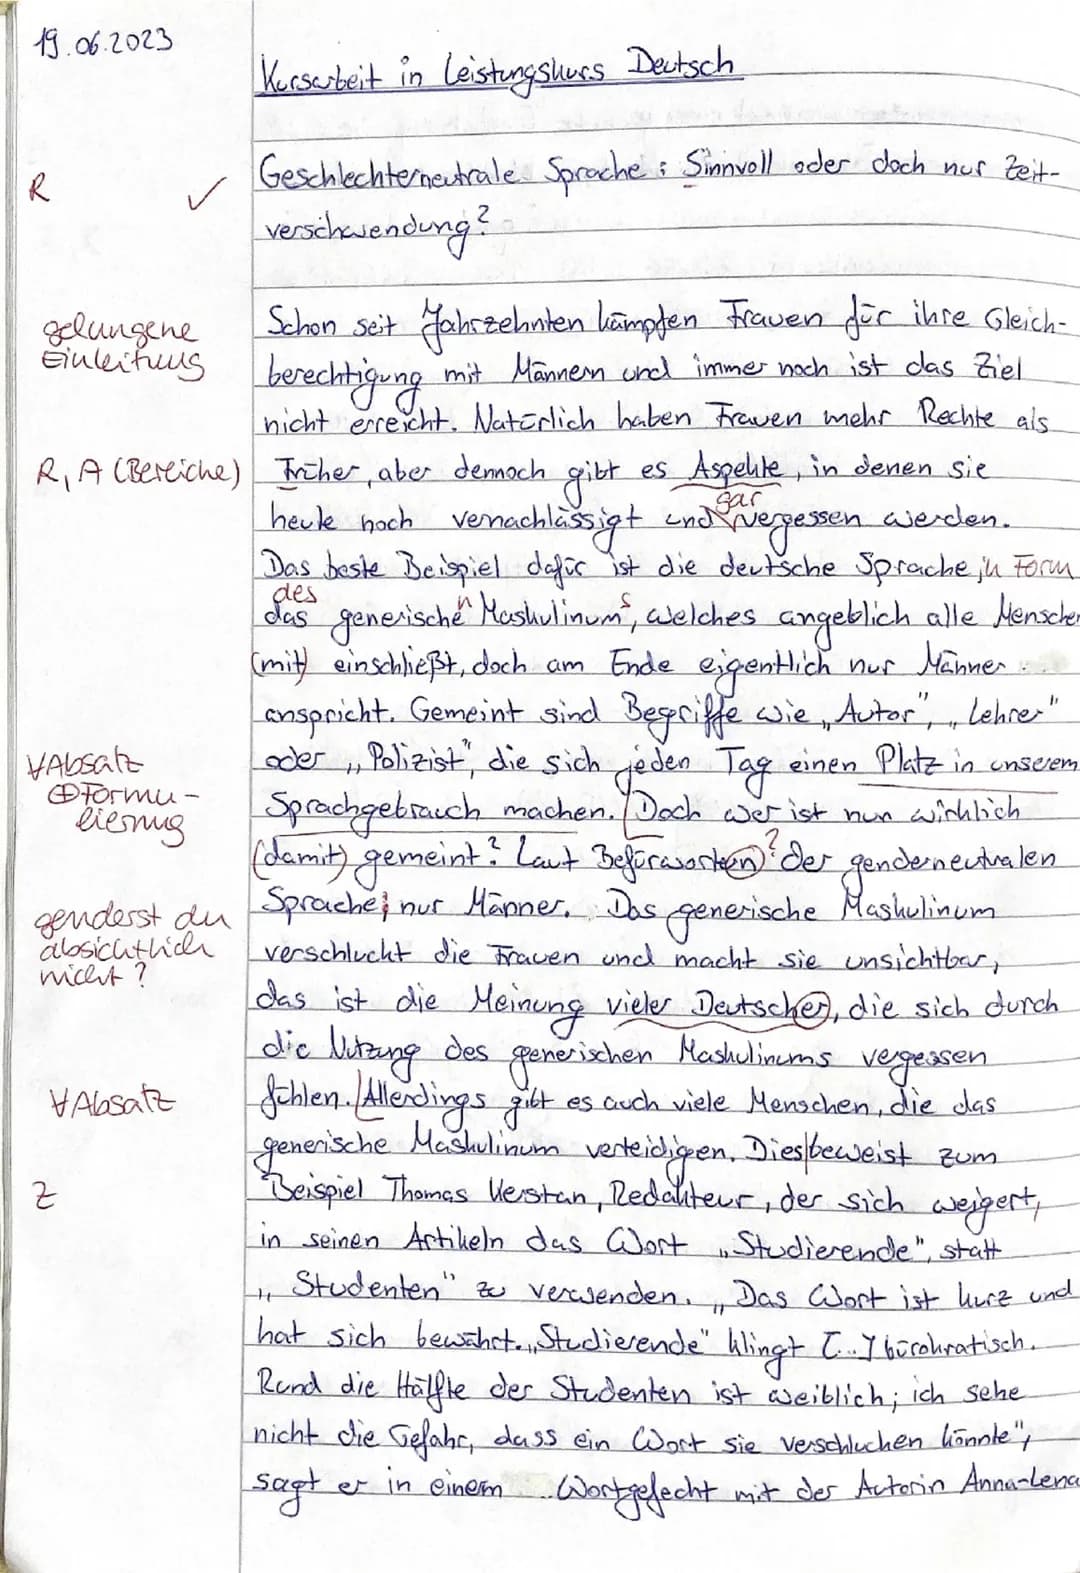 19.06.2023
Kursarbeit in Leistungskurs Deutsch
R ✓ Geschlechterneutrale Sprache: Sinnvoll oder doch nur Zeit-
verschwendung?
gelungene Schon seit Jahrzehnten kämpfen Frauen für ihre Gleich-
Einleitung berechtigung mit Männern und immer noch ist das Ziel
nicht erreicht. Natürlich haben Frauen mehr Rechte als
R, A (Bereiche) Früher, aber dennoch gibt es Aspekte, in denen sie
gar
heute noch vernachlässigt und vergessen werden.
Das beste Beispiel dafür ist die deutsche Sprache, in Form
des n s
das generische Maskulinum, welches angeblich alle Menschen
(mit) einschließt, doch am Ende eigentlich nur Männer
anspricht. Gemeint sind Begriffe wie „Autor", „Lehrer"
Absatz oder „Polizist", die sich jeden Tag einen Platz in unserem
⊕Formu- Sprachgebrauch machen. Doch wer ist nun wirklich
lierung (damit) gemeint? Laut Befürworten? der genderneutralen
genderst du Sprache; nur Männer. Das generische Maskulinum
absichtlich verschluckt die Frauen und macht sie unsichtbar,
nicht? das ist die Meinung vieler Deutscher, die sich durch
die Nutzung des generischen Maskulinums vergessen
Absatz fühlen. Allerdings gibt es auch viele Menschen, die das
generische Maskulinum verteidigen. Dies beweist zum
Z Beispiel Thomas Kerstan, Redakteur, der sich weigert,
in seinen Artikeln das Wort „Studierende", statt
„Studenten" zu verwenden. „Das Wort ist kurz und
hat sich bewährt. „Studierende" klingt [...] bürokratisch.
Rund die Hälfte der Studenten ist weiblich; ich sehe
nicht die Gefahr, dass ein Wort sie verschlucken könnte",
sagt er in einem Wortgefecht mit der Autorin Anna-Lena